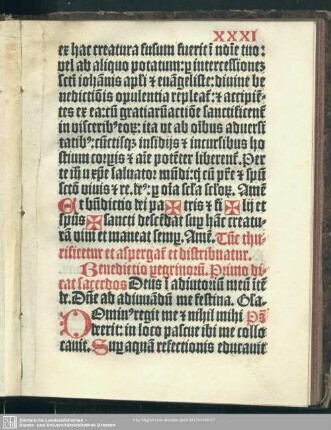 XXXI
ex hac creatura fusum fuerit i ndīe tuo:
vel ab aliquo potatum: ꝑ intercessionez
scti iohānis apli ⁊ euāgeliste: diuine be
nedictiōis opulentia repleat̄: ⁊ accipiē⸗
tes ex ea: cū gratiarū actiōe sanctificent̄
in visceribꝰ eoꝝ: ita vt ab oībus aduersi
tatibꝰ: cūctisqꝫ insidijs ⁊ incursibus ho
stium corꝑis ⁊ aīe potēter liberent̄. Per
te iħu xp̄e saluator mūdi: q̄ cū pr̄e ⁊ spū
sctō viuis ⁊ re. deꝰ: ꝑ oīa scl̄a scl̄oꝝ. Amē
Et bn̄dictio dei pa ✠ tris ⁊ fi ✠ lij et
spūs ✠ sancti descēdat suꝑ hāc creatu⸗
rā vini et maneat semꝑ. Amē. Tūc thu⸗
rificetur et aspergat̄ et distribuatur.
Benedictio ꝑegrinoꝝ. Primo di⸗
cat sacerdos Deus ī adiutoriū meū ītē
de. Dn̄e ad adiuuādū me festina. Gla.
Dominꝰ regit me ⁊ nihil mihi Ps̄
deerit: in loco pascue ibi me collo
cauit. Suꝑ aquā refectionis educauit
Sächsische Landesbibliothek -
Staats- und Universitätsbibliothek Dresden